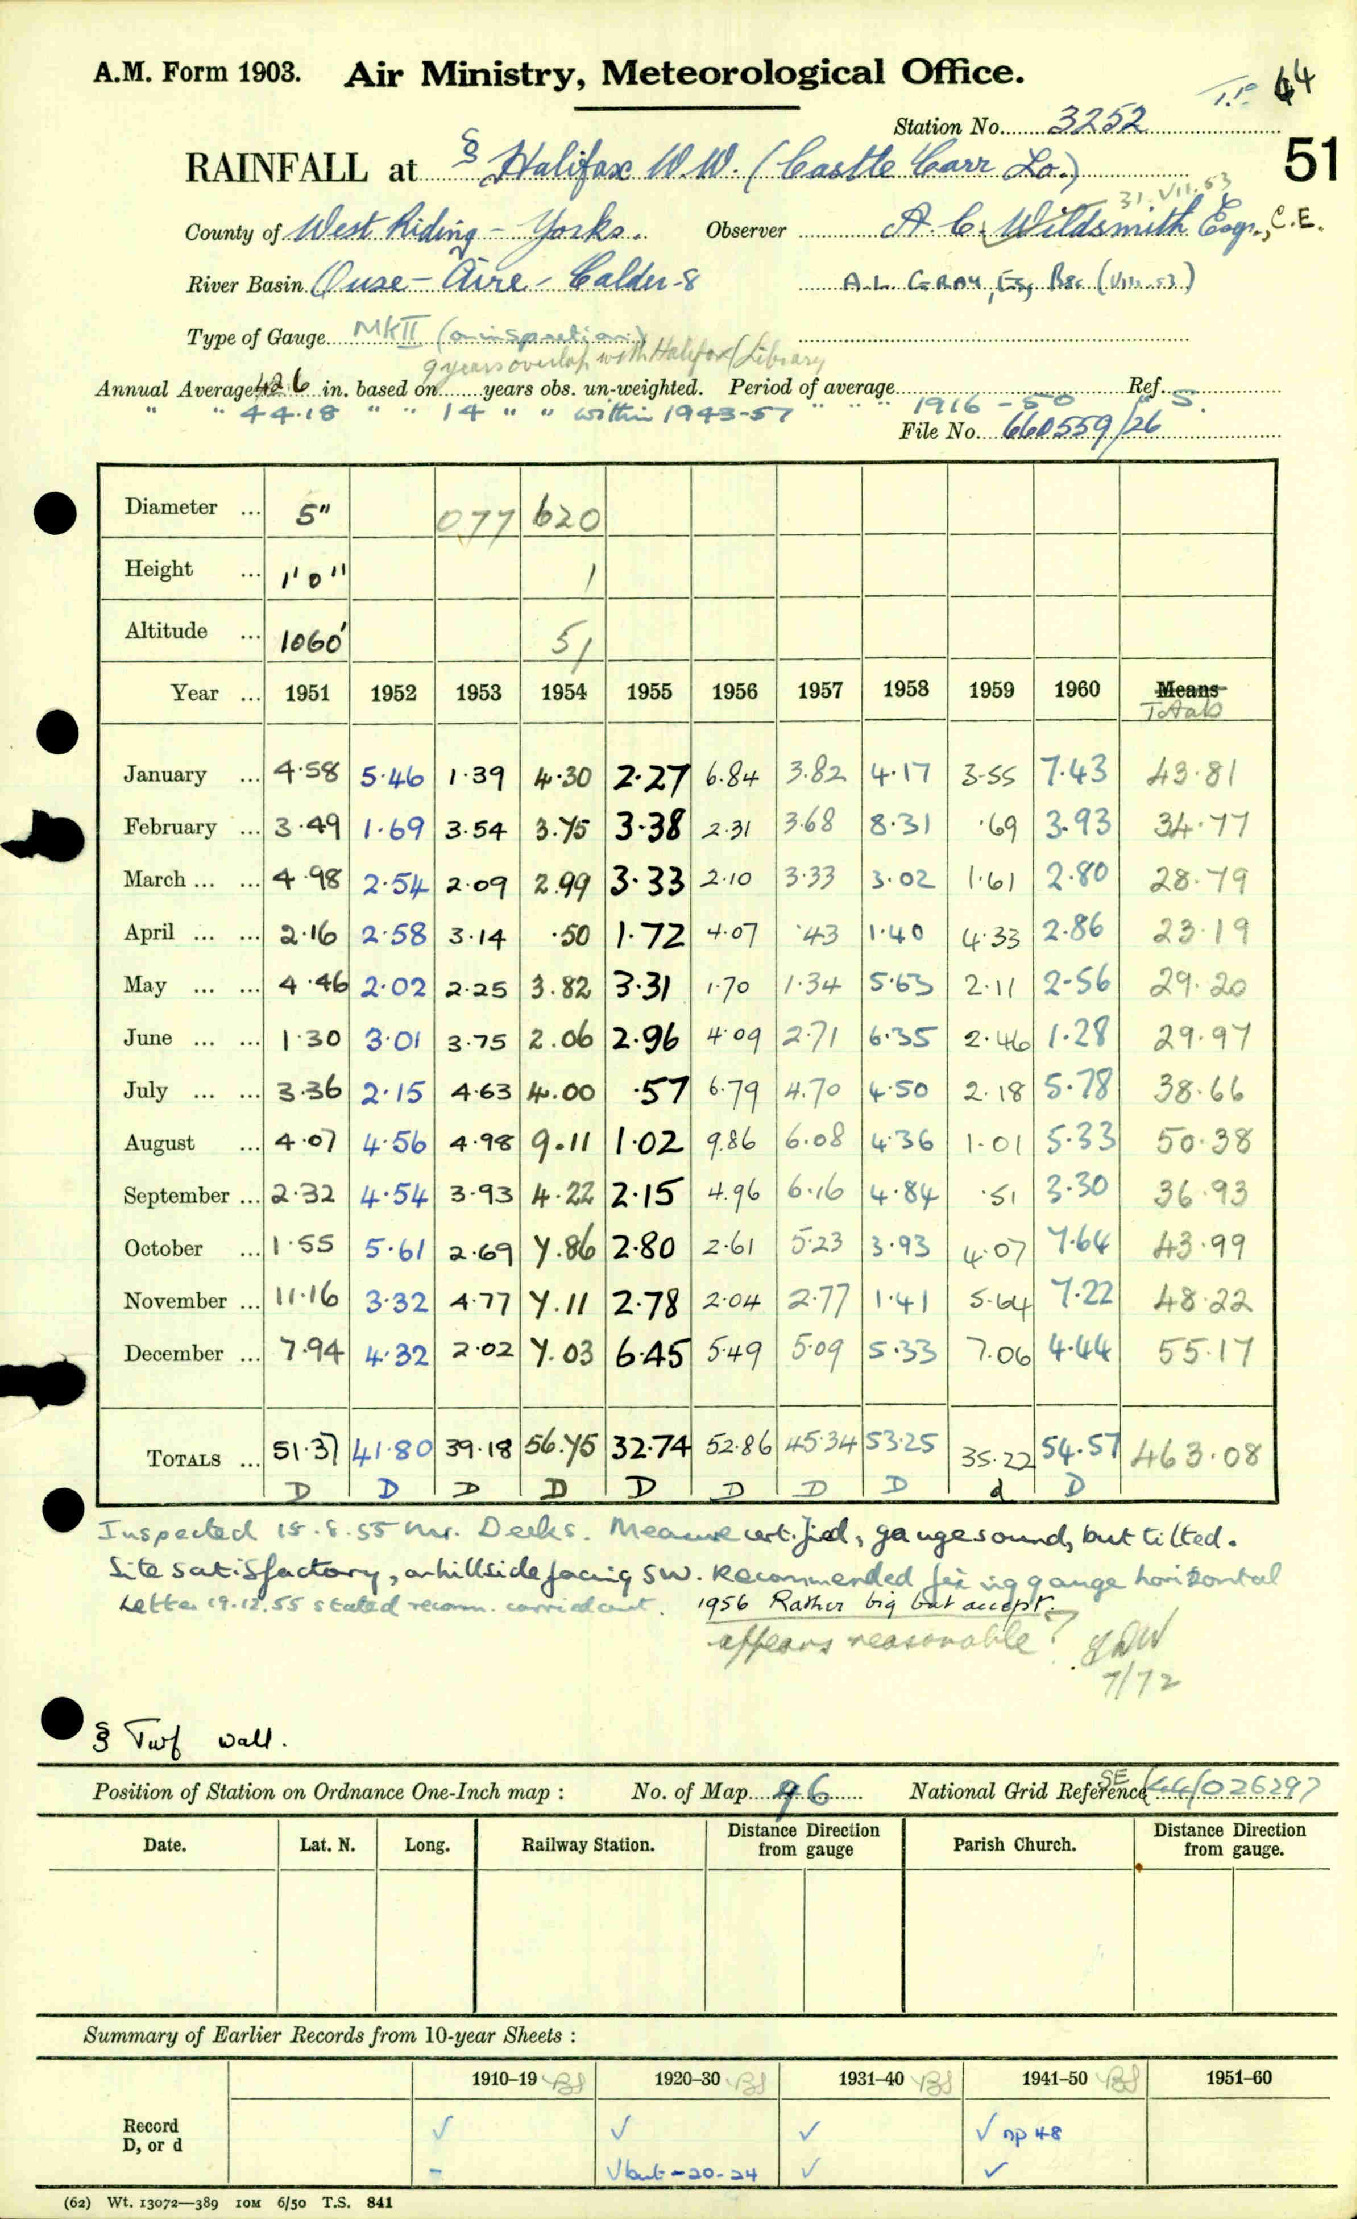 A.M. Form 1903. Air Ministry, Meteorological Office. 64
Station No. 3252
51
RAINFALL at § Halifax W.W. (Castle Carr Lo.)
31.VII.53
County of West Riding - Yorks. Observer A. C. Wildsmith Esqr., C.E.
River Basin Ouse - Aire - Calder-8 A.L. GRAY, Esq, BSc (VIII.53)
Type of Gauge MK II (on inspection)
9 years overlap with Halifax/Library
Annual Average 42 6 in. based on years obs. un-weighted. Period of average Ref.
" " 44.18 " " 14 " " within 1943-57 " " " 1916-50 " S.
File No. 660559/26
Diameter ... 5" 077 620
Height ... 1'0" 1
Altitude ... 1060' 51
Year ... 1951 1952 1953 1954 1955 1956 1957 1958 1959 1960 Means
Totals
January ... 4.58 5.46 1.39 4.30 2.27 6.84 3.82 4.17 3.55 7.43 43.81
February ... 3.49 1.69 3.54 3.75 3.38 2.31 3.68 8.31 .69 3.93 34.77
March ... ... 4.98 2.54 2.09 2.99 3.33 2.10 3.33 3.02 1.61 2.80 28.79
April ... ... 2.16 2.58 3.14 .50 1.72 4.07 .43 1.40 4.33 2.86 23.19
May ... ... 4.46 2.02 2.25 3.82 3.31 1.70 1.34 5.63 2.11 2.56 29.20
June ... ... 1.30 3.01 3.75 2.06 2.96 4.09 2.71 6.35 2.46 1.28 29.97
July ... ... 3.36 2.15 4.63 4.00 .57 6.79 4.70 4.50 2.18 5.78 38.66
August ... 4.07 4.56 4.98 9.11 1.02 9.86 6.08 4.36 1.01 5.33 50.38
September ... 2.32 4.54 3.93 4.22 2.15 4.96 6.16 4.84 .51 3.30 36.93
October ... 1.55 5.61 2.69 7.86 2.80 2.61 5.23 3.93 4.07 7.64 43.99
November ... 11.16 3.32 4.77 7.11 2.78 2.04 2.77 1.41 5.64 7.22 48.22
December ... 7.94 4.32 2.02 7.03 6.45 5.49 5.09 5.33 7.06 4.44 55.17
TOTALS ... 51.37 41.80 39.18 56.75 32.74 52.86 45.34 53.25 35.22 54.57 463.08
D D D D D D D D d D
Inspected 15.8.55 Mr. Deeks. Measure certified, gauge sound, but tilted.
Site satisfactory, on hillside facing SW. Recommended fixing gauge horizontal
Letter 19.12.55 stated recomm. carried out. 1956 Rather big but accept.
appears reasonable?
7/72
§ Turf wall.
Position of Station on Ordnance One-Inch map : No. of Map 96 National Grid Reference SE 44/026297
Date. Lat. N. Long. Railway Station. Distance Direction from gauge Parish Church. Distance Direction from gauge.
Summary of Earlier Records from 10-year Sheets :
1910-19 1920-30 1931-40 1941-50 1951-60
Record ✓ ✓ ✓ ✓ np 48
D, or d - ✓ but -20-24 ✓ ✓
(62) Wt. 13072—389 10M 6/50 T.S. 841